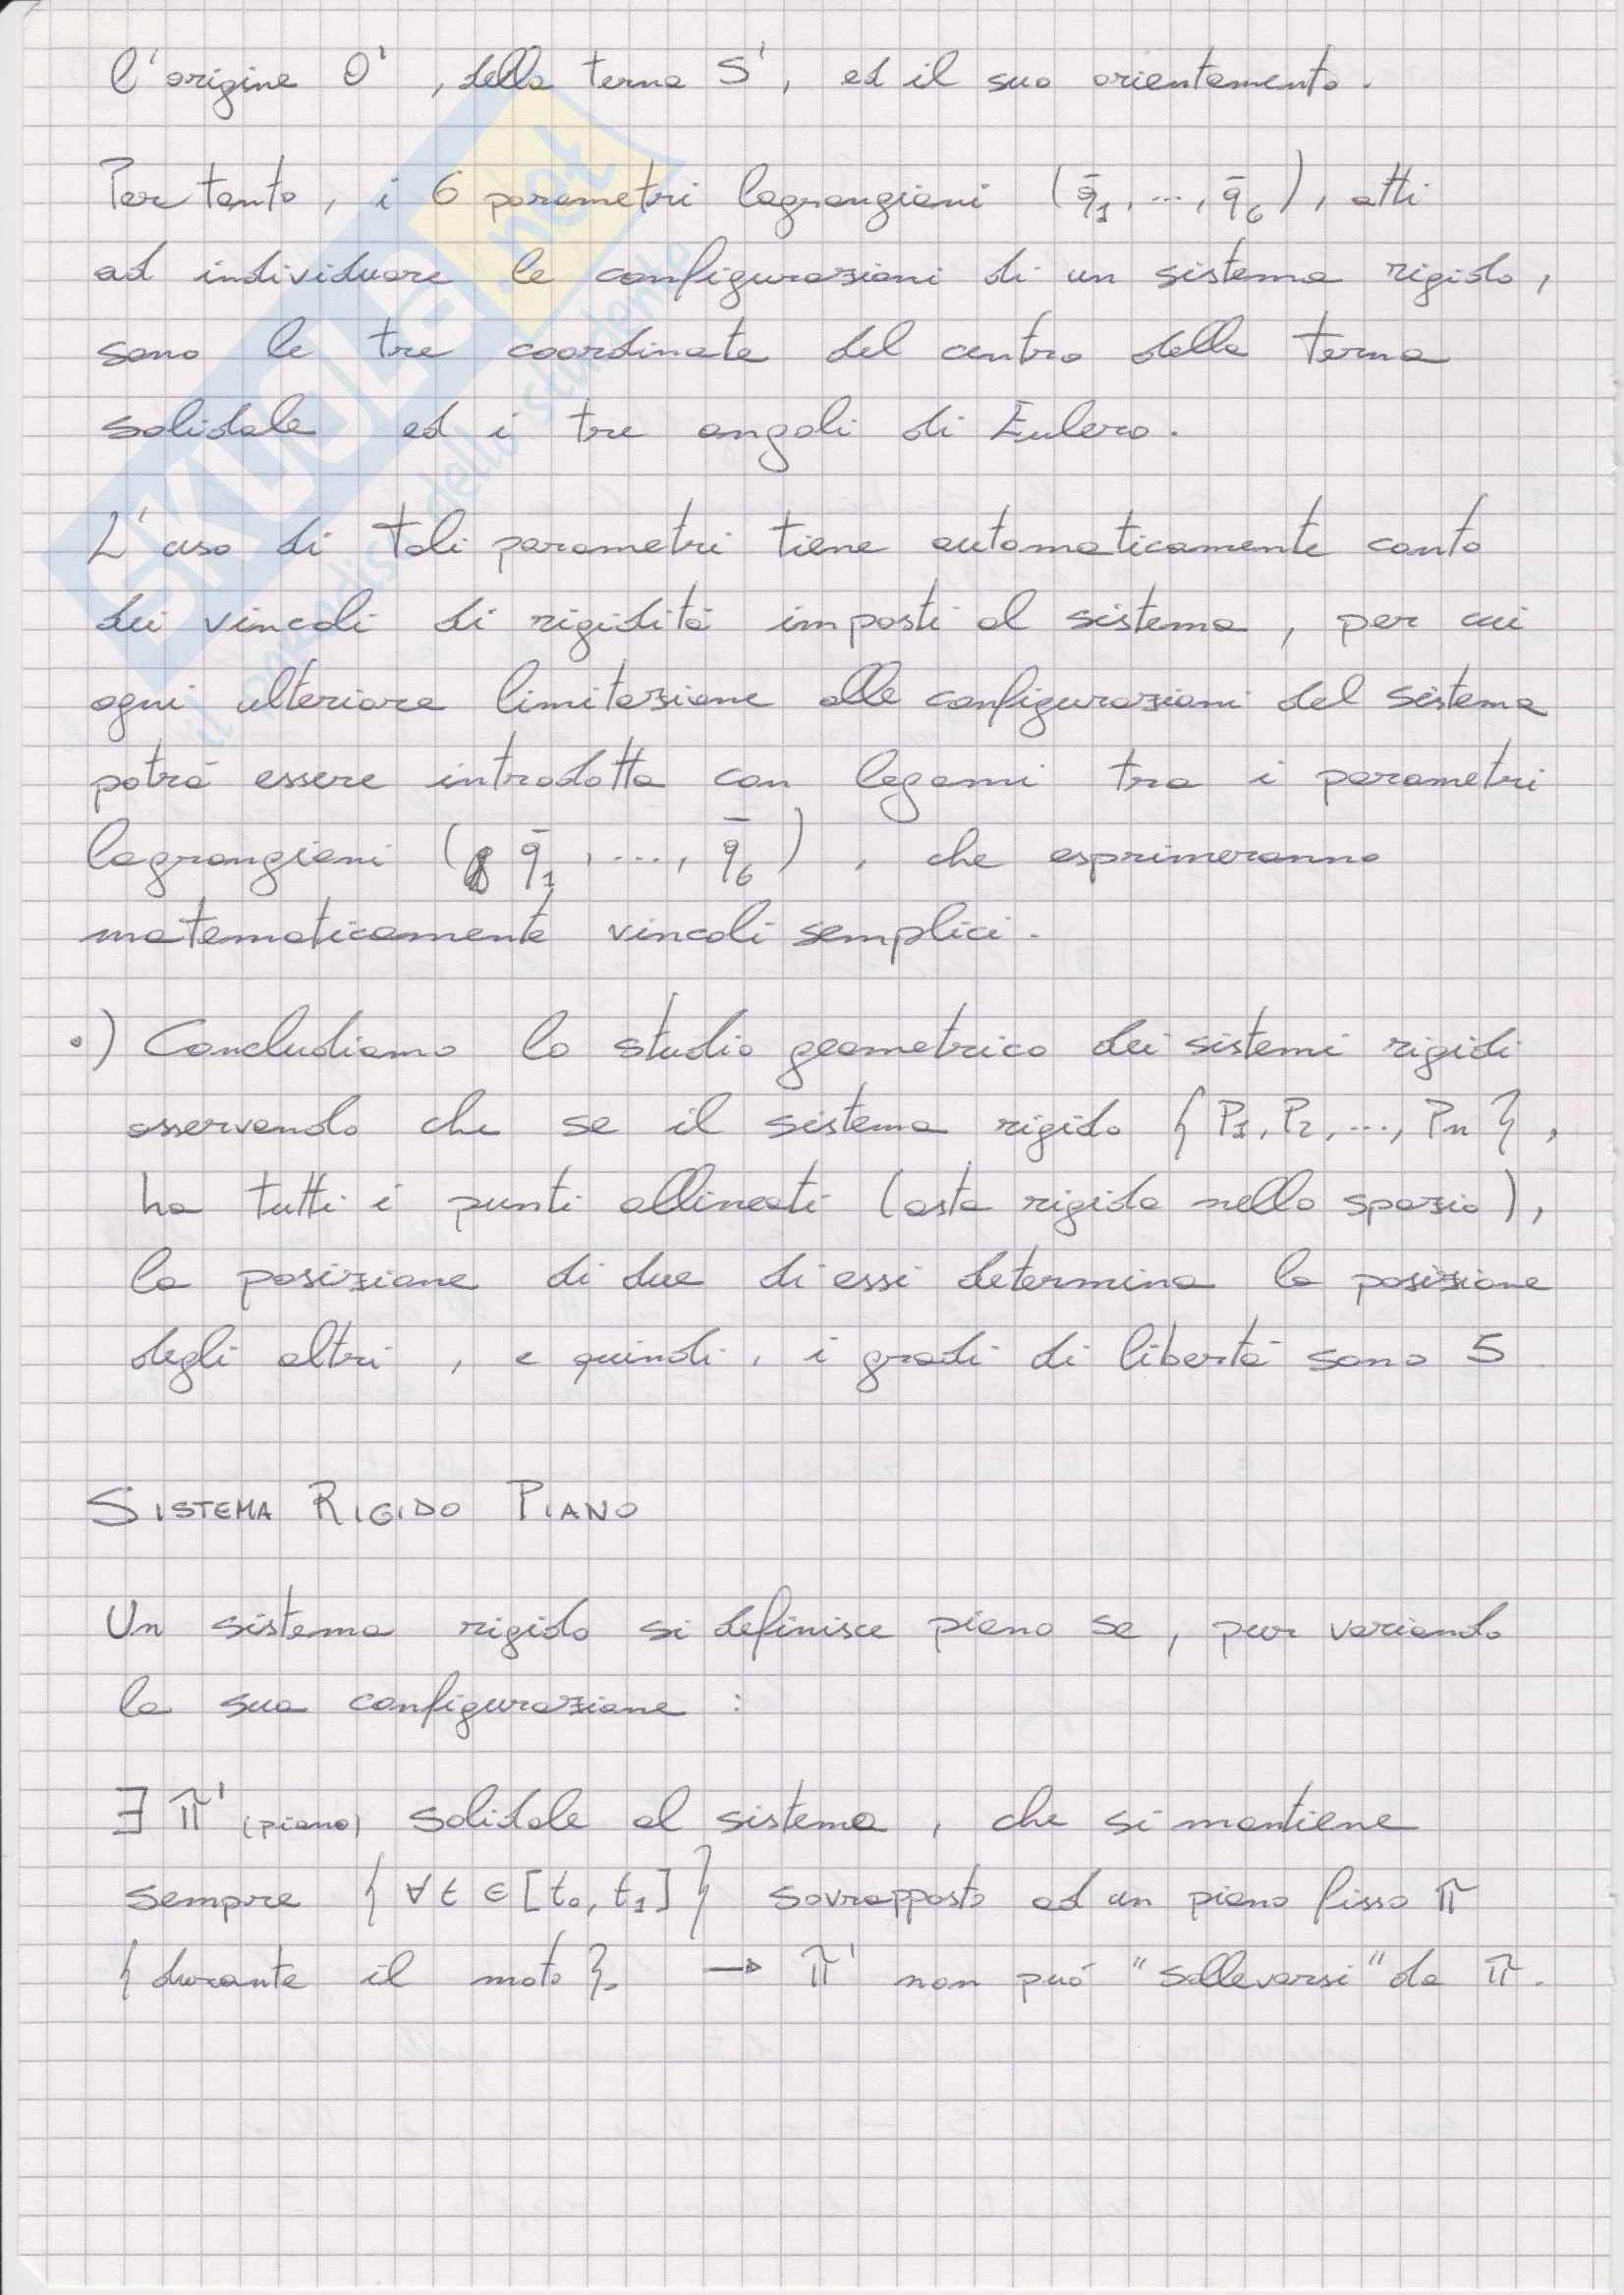 l'origine O', della terna S', ed il suo orientamento.
Per tanto, i 6 parametri lagrangiani (q̄₁, ..., q̄₆), atti
ad individuare le configurazioni di un sistema rigido,
sono le tre coordinate del centro della terna
solidale ed i tre angoli di Eulero.
L'uso di tali parametri tiene automaticamente conto
dei vincoli di rigidità imposti al sistema, per cui
ogni ulteriore limitazione alle configurazioni del sistema
potrà essere introdotta con legami tra i parametri
lagrangiani (q̄₁, ..., q̄₆), che esprimeranno
matematicamente vincoli semplici.
•) Concludiamo lo studio geometrico dei sistemi rigidi
osservando che se il sistema rigido {P₁, P₂, ..., Pn},
ha tutti i punti allineati (asta rigida nello spazio),
la posizione di due di essi determina la posizione
degli altri, e quindi, i gradi di libertà sono 5.
SISTEMA RIGIDO PIANO
Un sistema rigido si definisce piano se, pur variando
la sua configurazione :
∃ π' (piano) solidale al sistema, che si mantiene
sempre {∀ t ∈ [t₀, t₁]} sovrapposto ad un piano fisso π
{durante il moto}. → π' non può "sollevarsi" da π.
SKUOLA.net
il paradiso dello studente